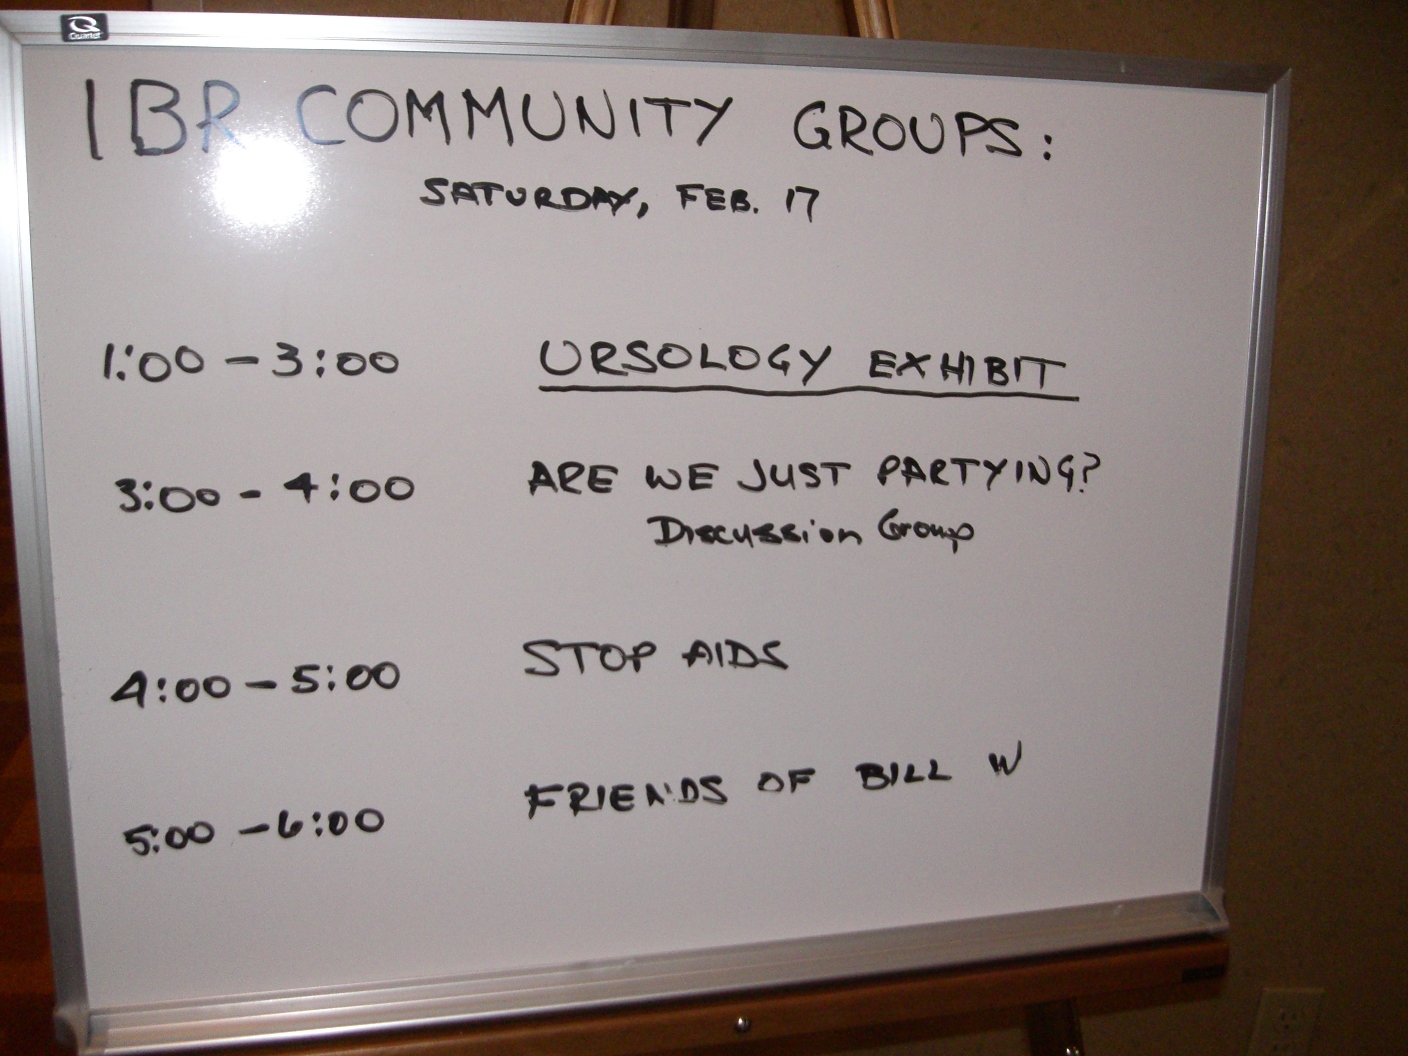 Quartet
IBR COMMUNITY GROUPS:
SATURDAY, FEB. 17
1:00 - 3:00 URSOLOGY EXHIBIT
3:00 - 4:00 ARE WE JUST PARTYING?
Discussion Group
4:00 - 5:00 STOP AIDS
5:00 - 6:00 FRIENDS OF BILL W